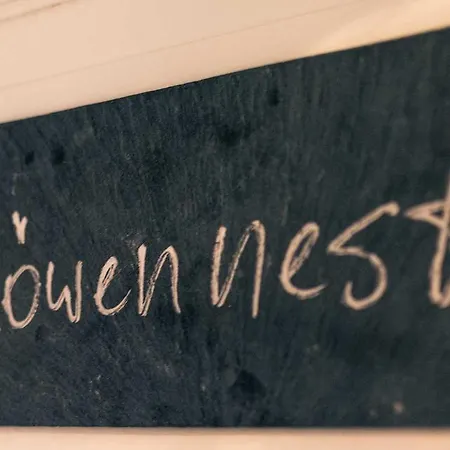 öwennest